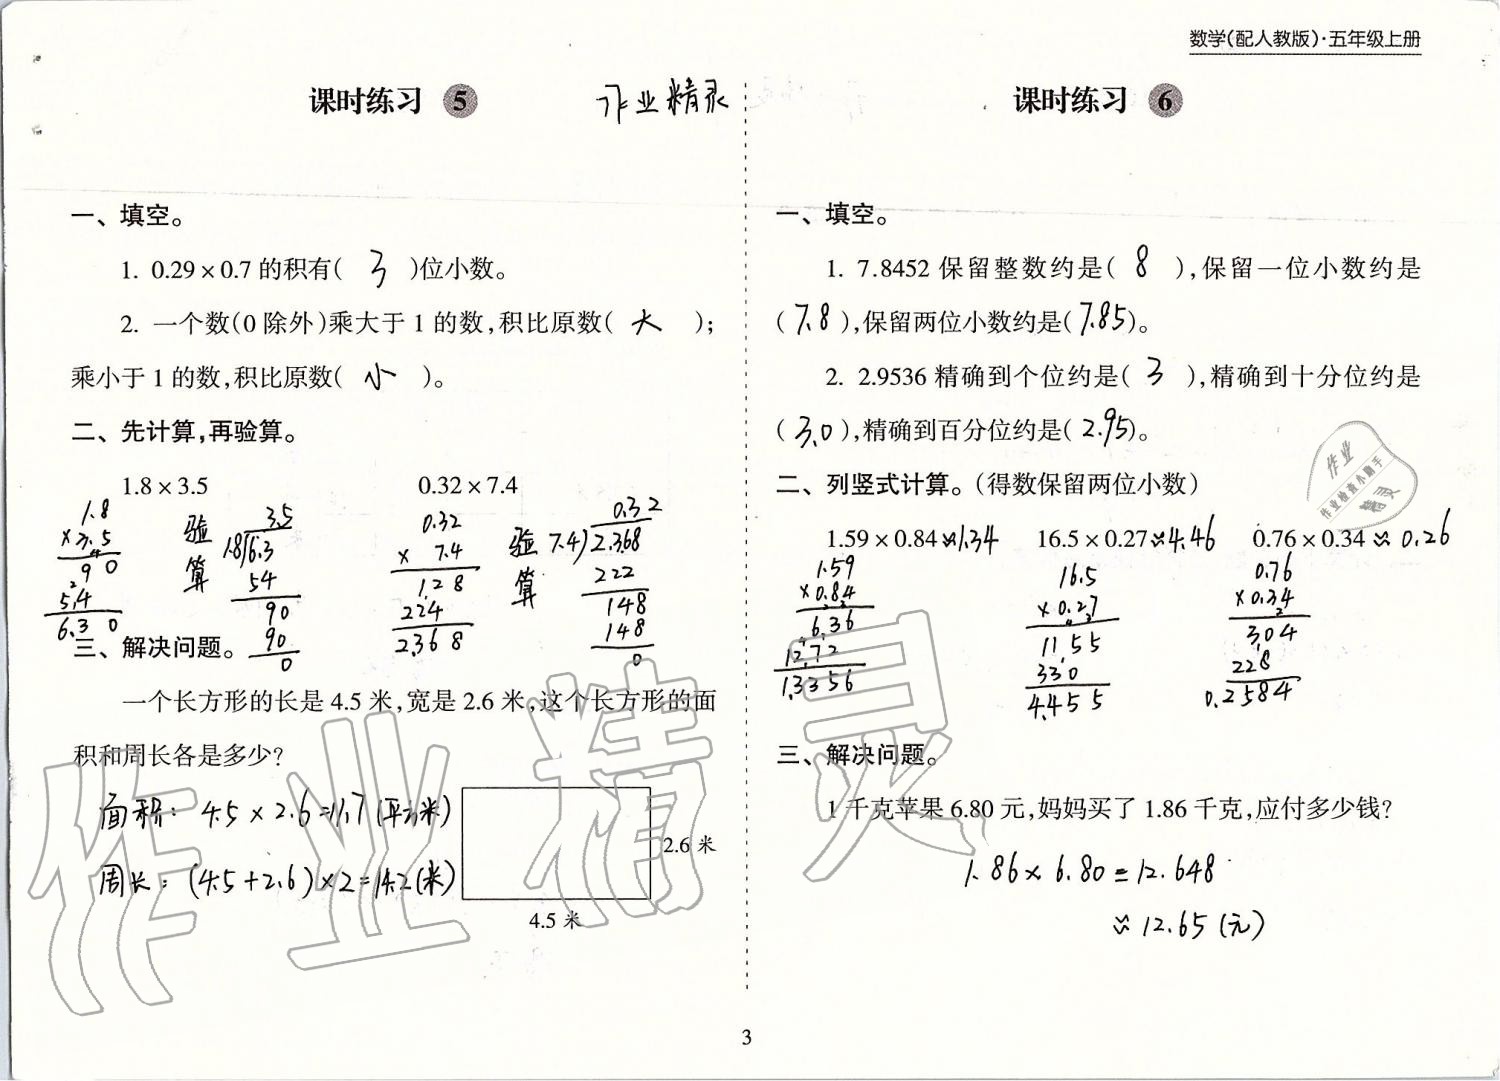 数学(配人教版)·五年级上册
课时练习 5
作业精灵
一、填空。
1. 0.29×0.7的积有( 3 )位小数。
2. 一个数(0除外)乘大于1的数,积比原数( 大 );
乘小于1的数,积比原数( 小 )。
二、先计算,再验算。
1.8×3.5 0.32×7.4
1.8
×3.5
90
54
6.30
验算
3.5
1.8)6.3
54
90
90
0
0.32
× 7.4
128
224
2.368
验算
0.32
7.4)2.368
222
148
148
0
三、解决问题。
一个长方形的长是4.5米,宽是2.6米,这个长方形的面
积和周长各是多少?
面积: 4.5×2.6=11.7(平方米)
周长: (4.5+2.6)×2=14.2(米)
2.6米
4.5米
课时练习 6
一、填空。
1. 7.8452保留整数约是( 8 ),保留一位小数约是
( 7.8 ),保留两位小数约是( 7.85 )。
2. 2.9536精确到个位约是( 3 ),精确到十分位约是
( 3.0 ),精确到百分位约是( 2.95 )。
二、列竖式计算。(得数保留两位小数)
1.59×0.84≈1.34 16.5×0.27≈4.46 0.76×0.34≈0.26
1.59
×0.84
636
1272
1.3356
16.5
×0.27
1155
330
4.455
0.76
×0.34
304
228
0.2584
三、解决问题。
1千克苹果6.80元,妈妈买了1.86千克,应付多少钱?
1.86×6.80=12.648
≈12.65(元)
作业
作业检查小助手
精灵
作业精灵
3